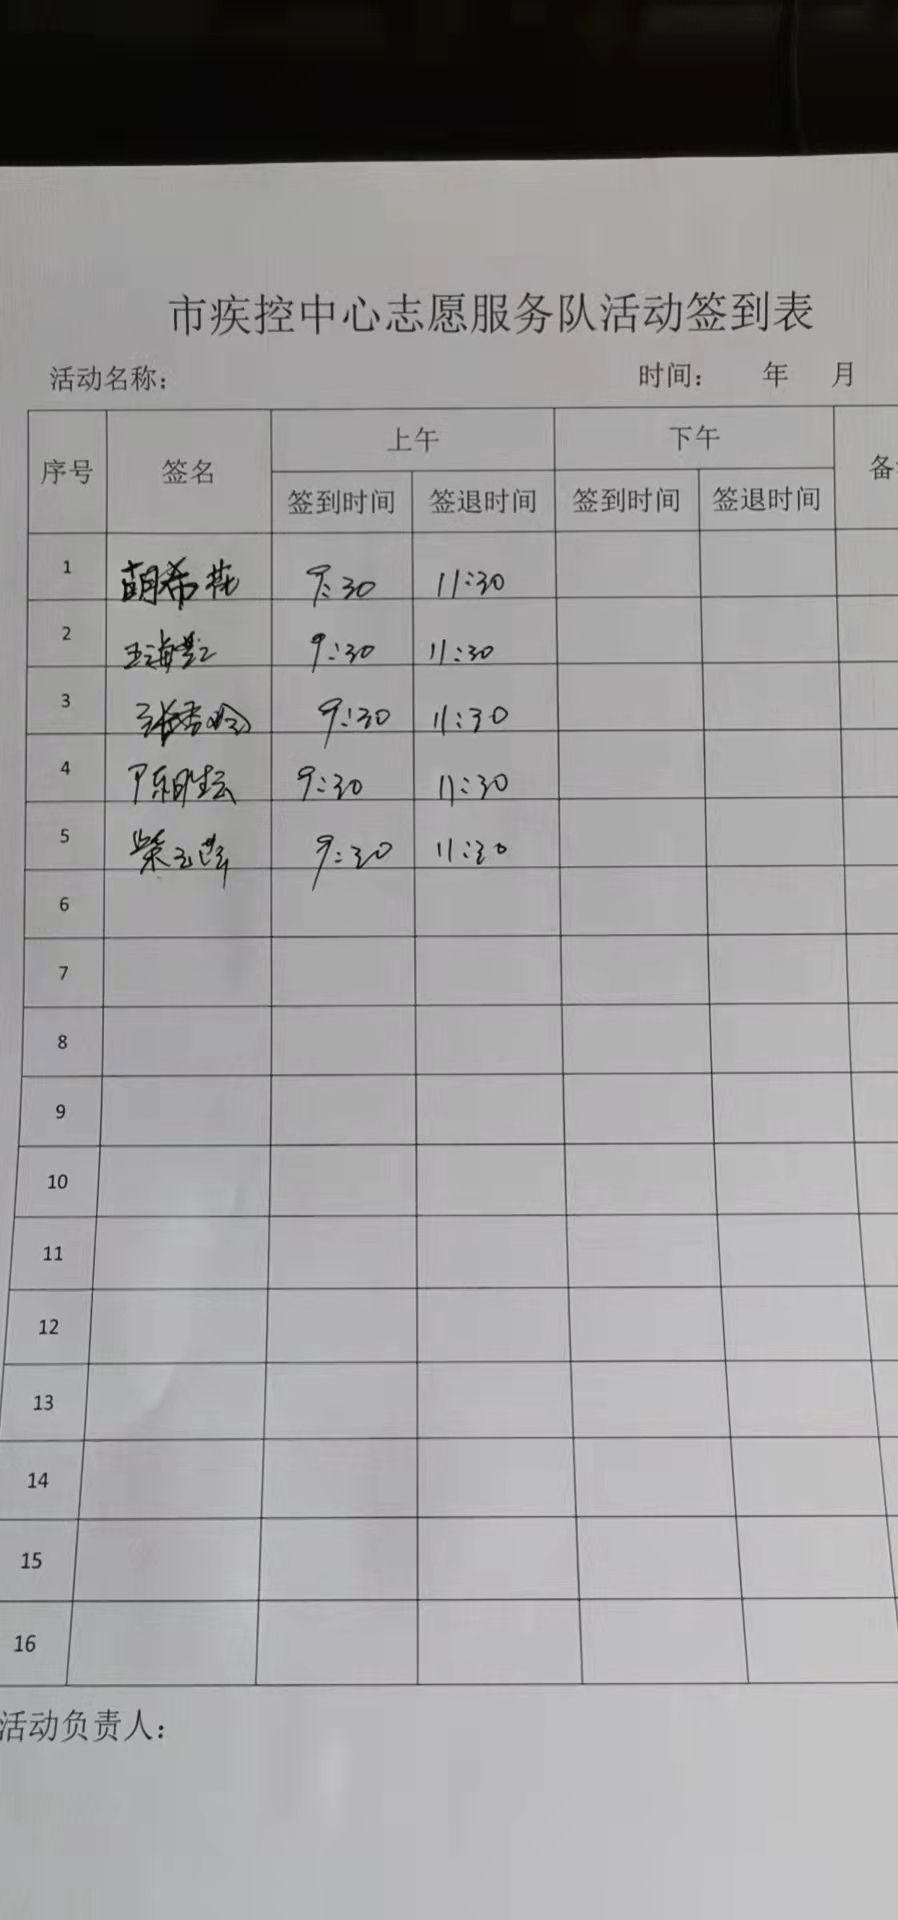 市疾控中心志愿服务队活动签到表
活动名称： 时间： 年 月
序号 签名 上午 下午 备
签到时间 签退时间 签到时间 签退时间
1 胡希花 9:30 11:30
2 9:30 11:30
3 9:30 11:30
4 9:30 11:30
5 柴玉萍 9:30 11:30
6
7
8
9
10
11
12
13
14
15
16
活动负责人：